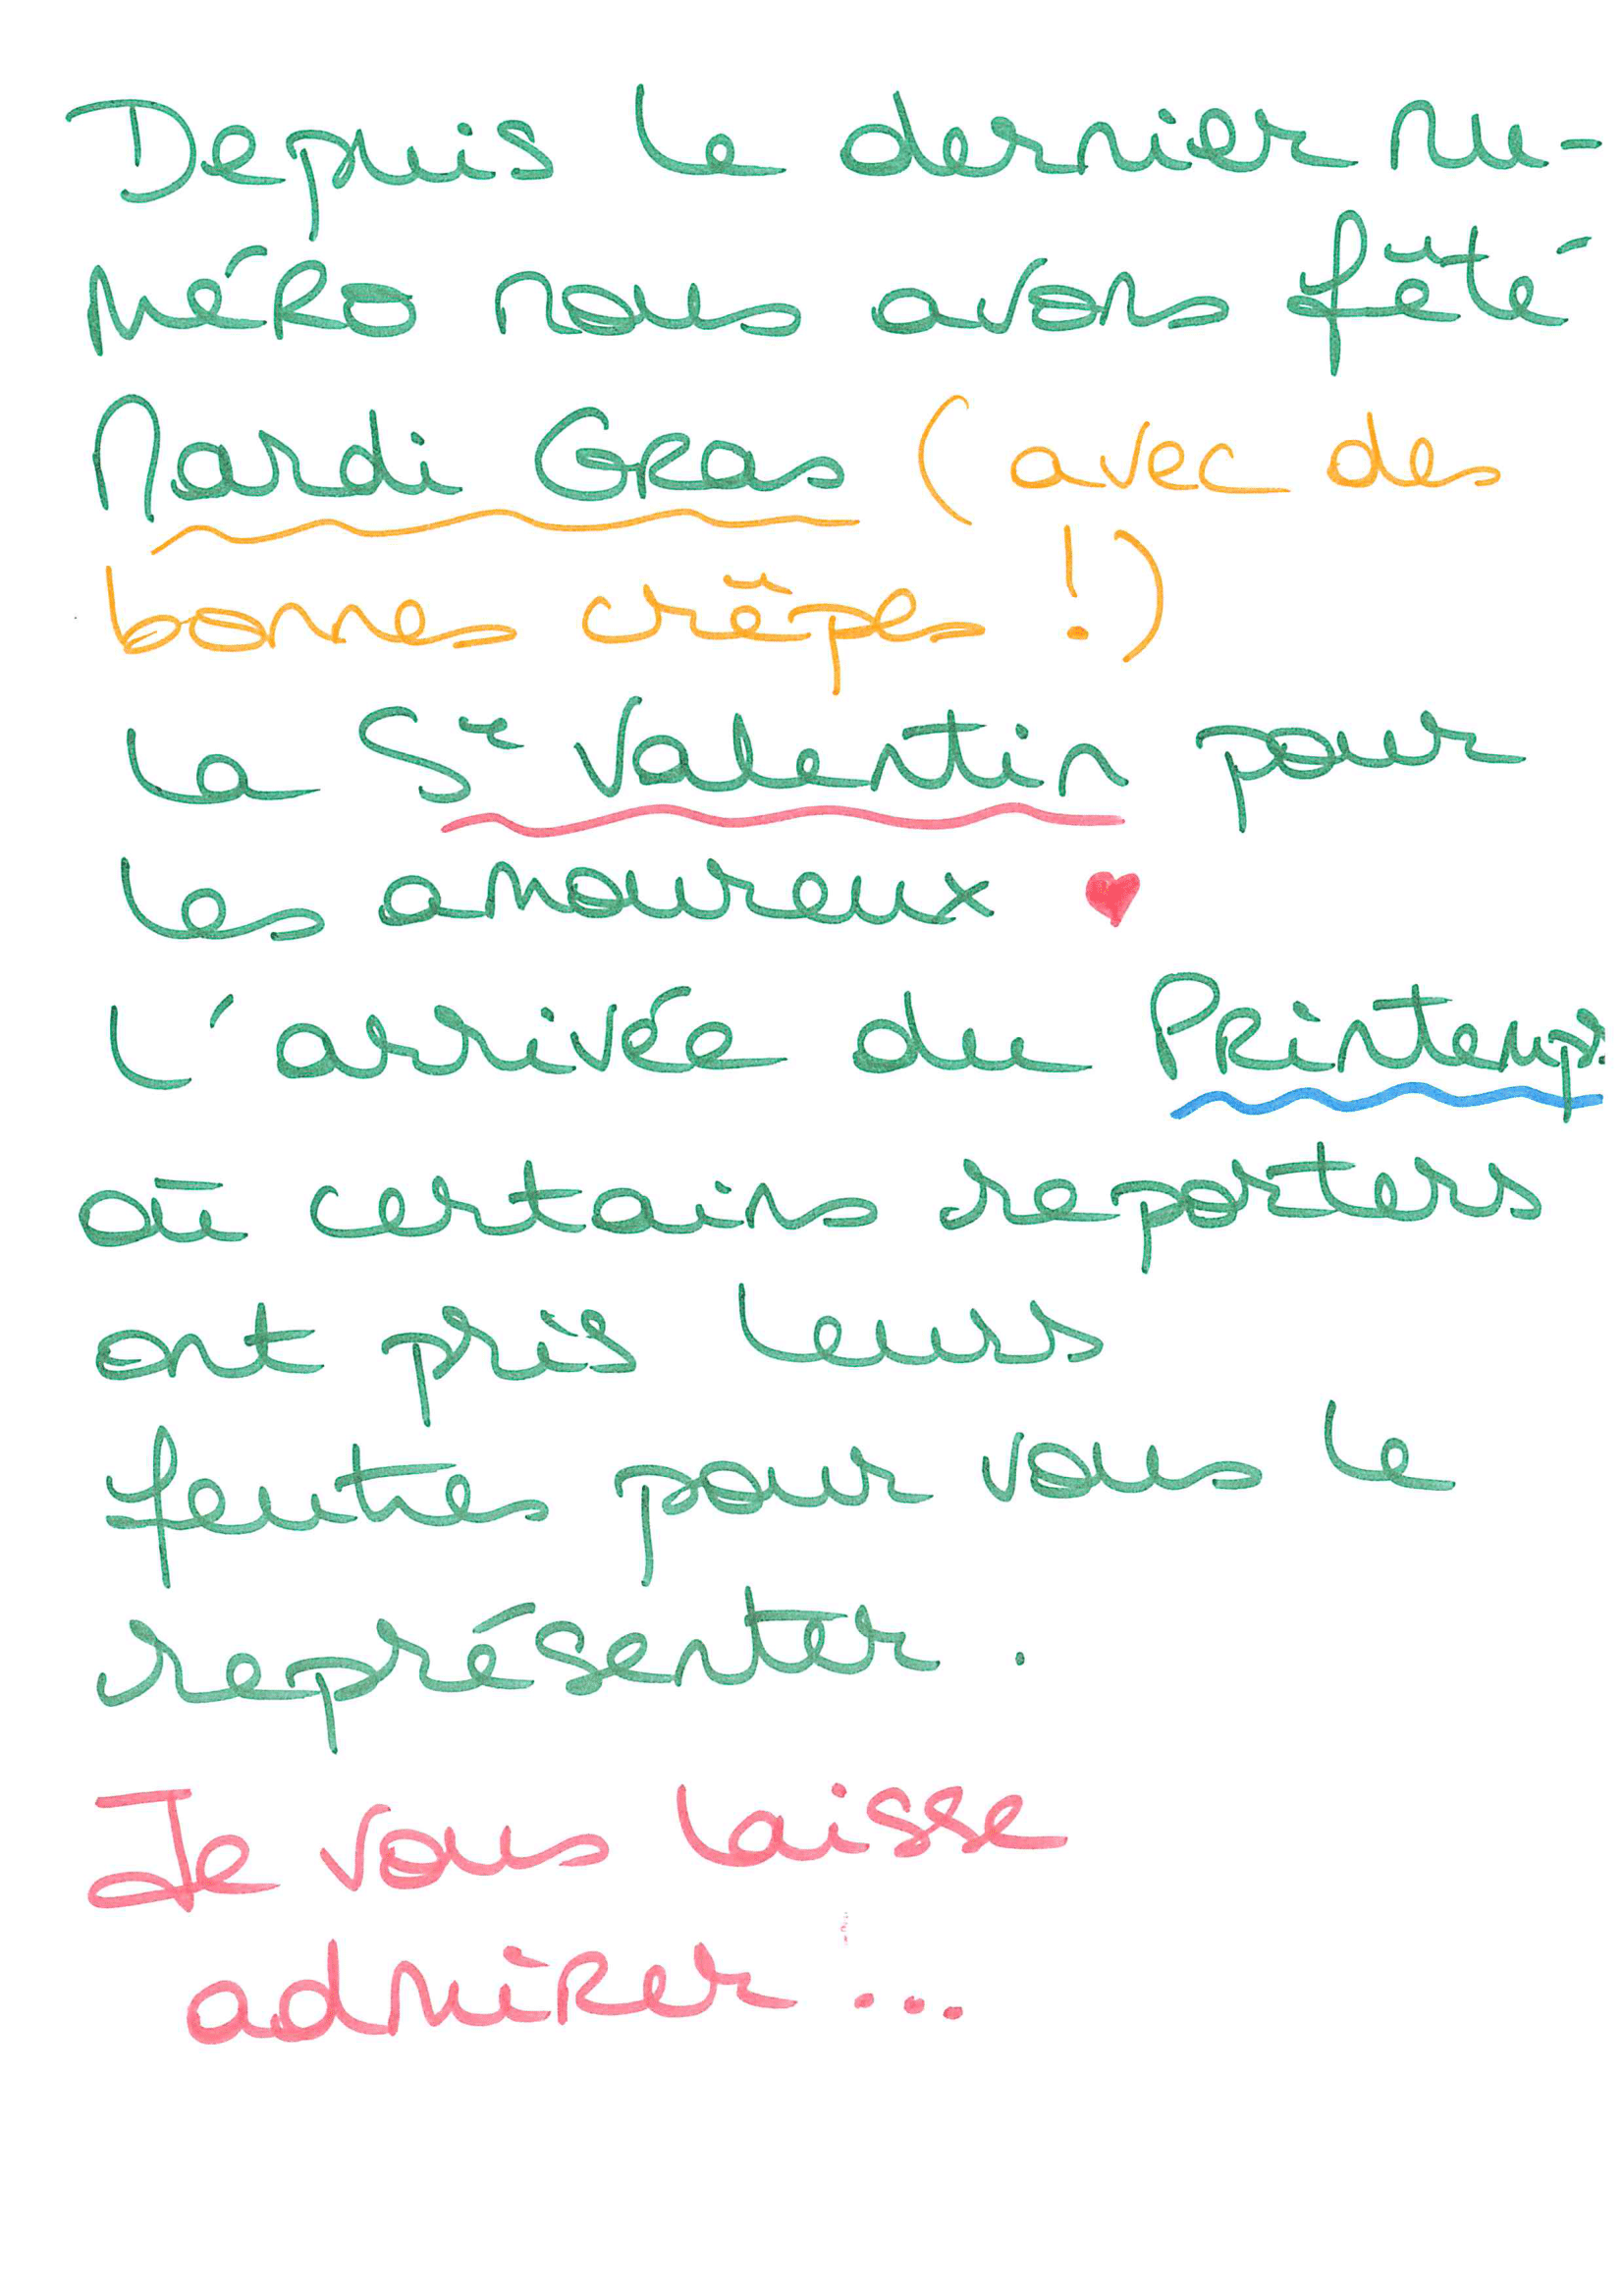 Depuis le dernier nu-
méro nous avons fêté
Mardi Gras (avec des
bonnes crêpes !)
La Se Valentin pour
les amoureux ♥
L'arrivée du Printemps
où certains reporters
ont pris leurs
feutres pour vous le
représenter.
Je vous laisse
admirer...